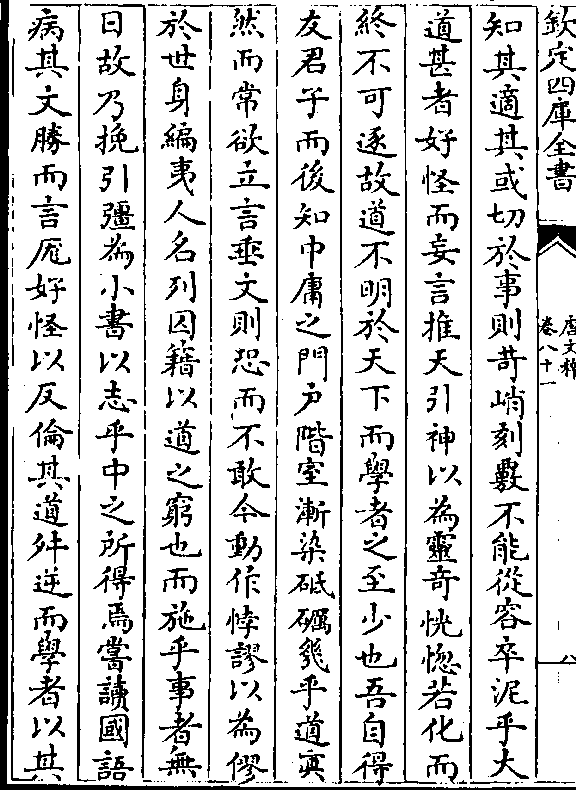 欽定四庫全書
唐文粹
卷八十一
八
知其適其或切於事則苛峭刻覈不能從容卒泥乎大
道甚者好怪而妄言推天引神以為靈奇恍惚若化而
終不可逐故道不明於天下而學者之至少也吾自得
友君子而後知中庸之門戶階室漸染砥礪幾乎道真
然而常欲立言垂文則恐而不敢今動作悖謬以為僇
於世身編夷人名列囚籍以道之窮也而施乎事者無
日故乃挽引彊為小書以志乎中之所得焉嘗讀國語
病其文勝而言尨好怪以反倫其道舛逆而學者以其